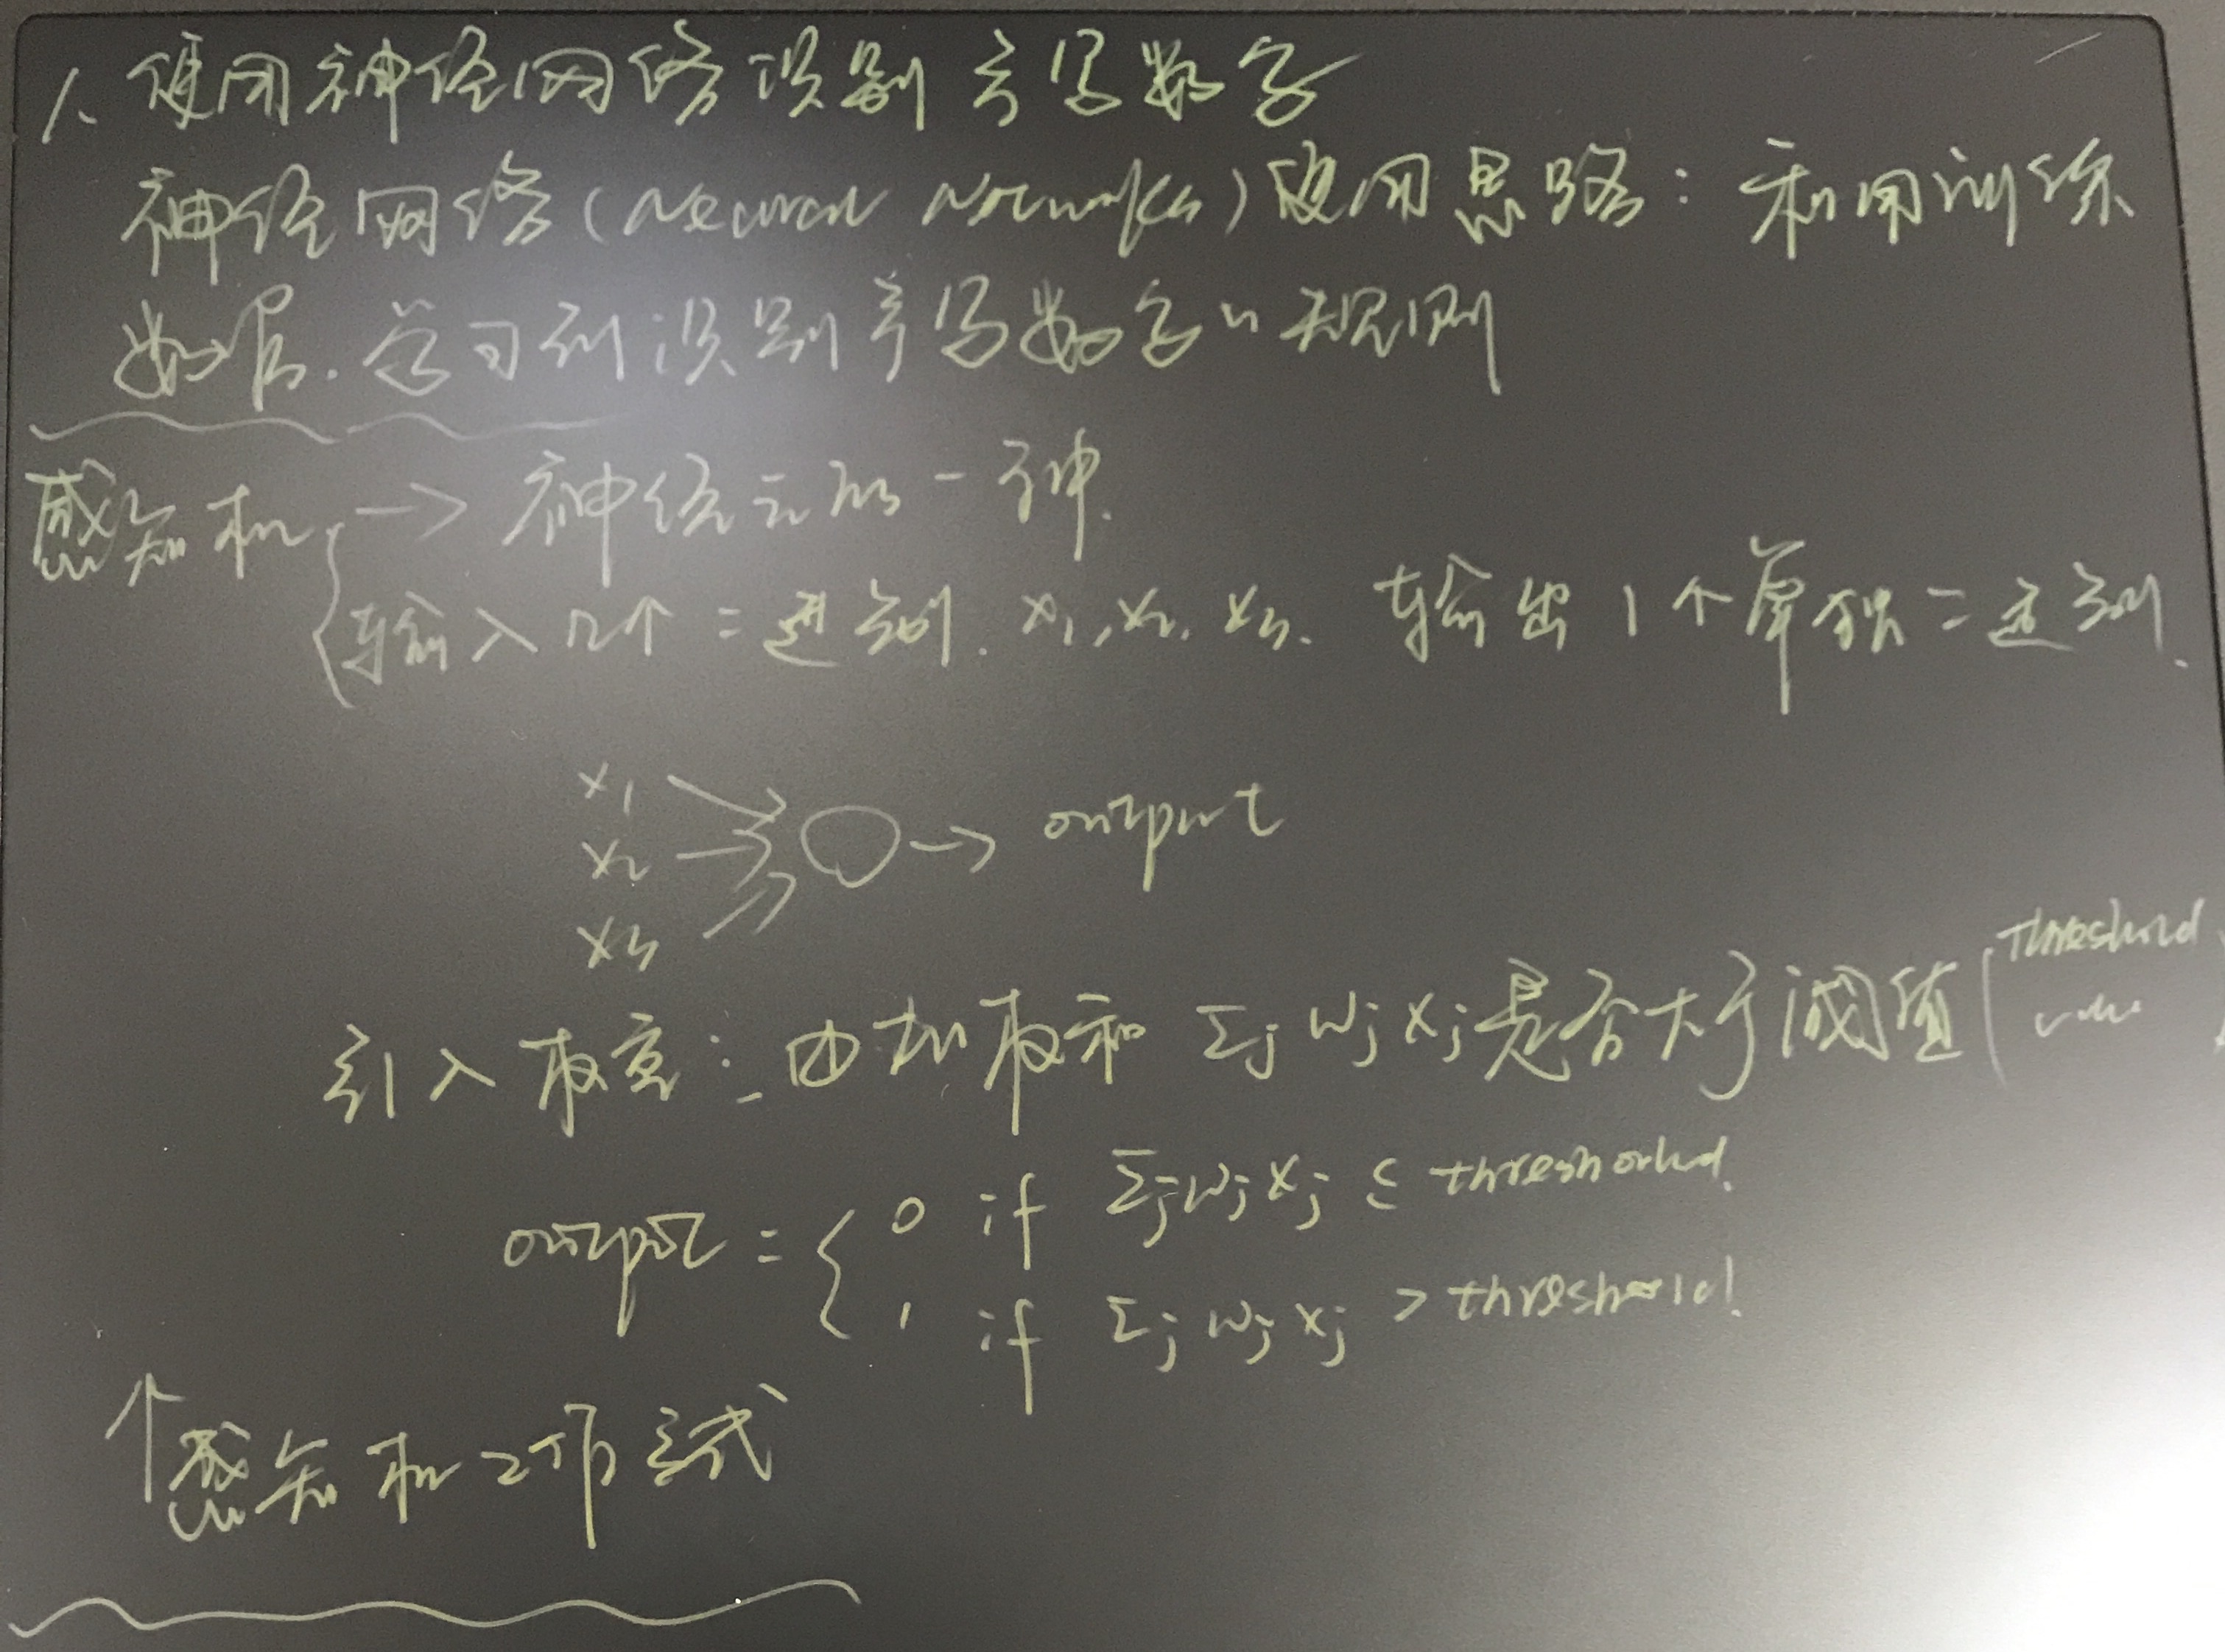 1、使用神经网络识别手写数字
神经网络(Neural Networks)使用思路：利用训练
数据.学习到识别手写数字的规则
感知机 → 神经元的一种.
输入几个二进制. x₁, x₂, x₃. 输出1个单独二进制.
x₁
x₂ → output
x₃
引入权重：由加权和 Σj wj xj 是否大于阈值(Threshold
value)
output = { 0 if Σj wj xj ≤ threshorld.
1 if Σj wj xj > threshorld.
↑感知机工作方式